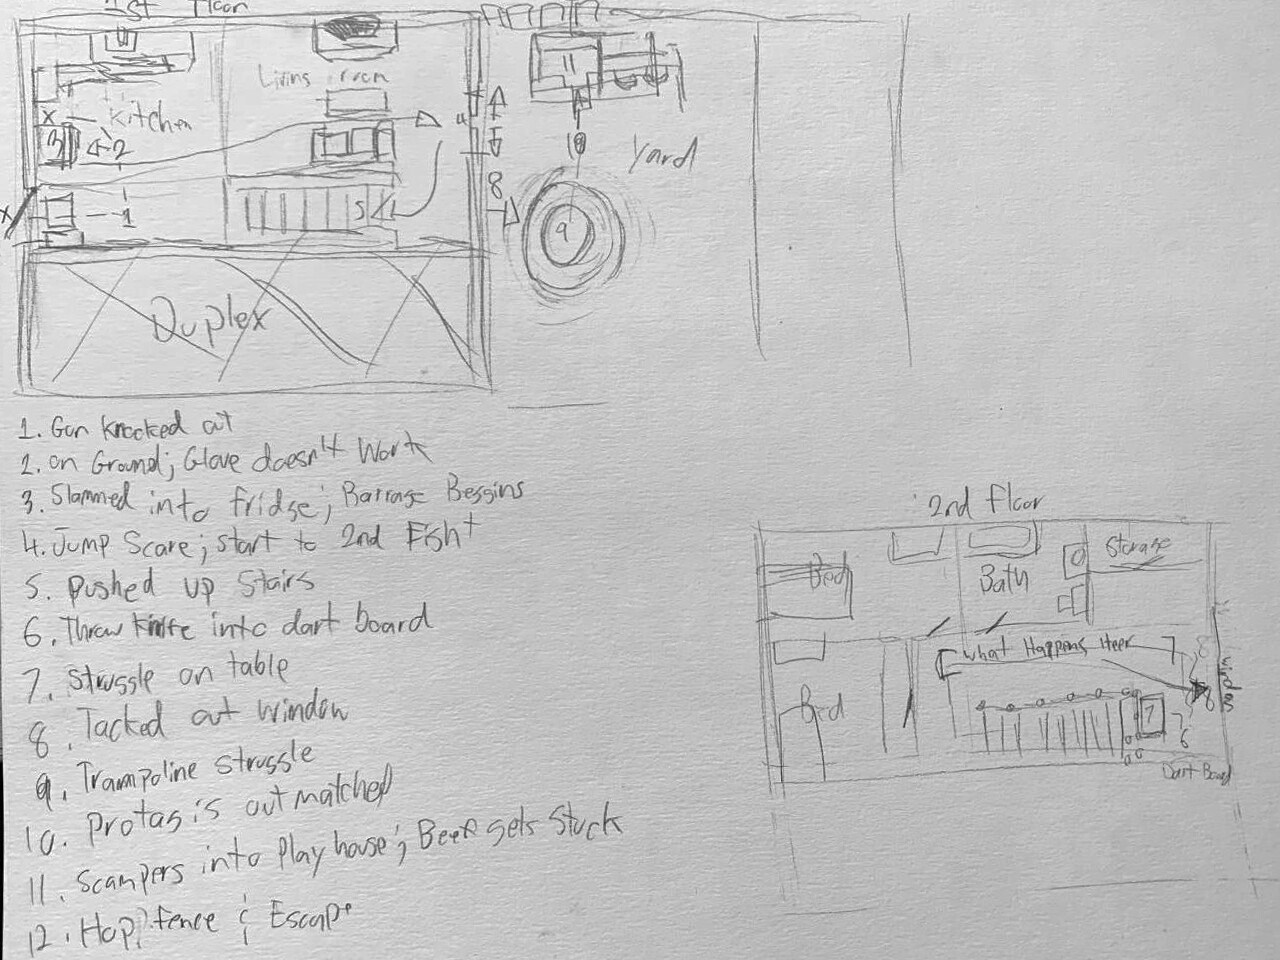 1st Floor
Living room
Kitchen
x
3
2
1
x
4
5
8
9
10
11
Yard
Duplex
1. Gun knocked out
2. on Ground; Glove doesn't Work
3. Slammed into fridge; Barrage Beggins
4. Jump Scare; start to 2nd Fight
5. Pushed up Stairs
6. Throw knife into dart board
7. Struggle on table
8. Tacked out window
9. Trampoline struggle
10. Protag is outmatched
11. Scampers into Play house; Beef gets Stuck
12. Hop fence & Escape
2nd floor
Bed
Bath
Storage
What Happens Heer
7
8
window
8
Bed
7
7
6
Dart Board